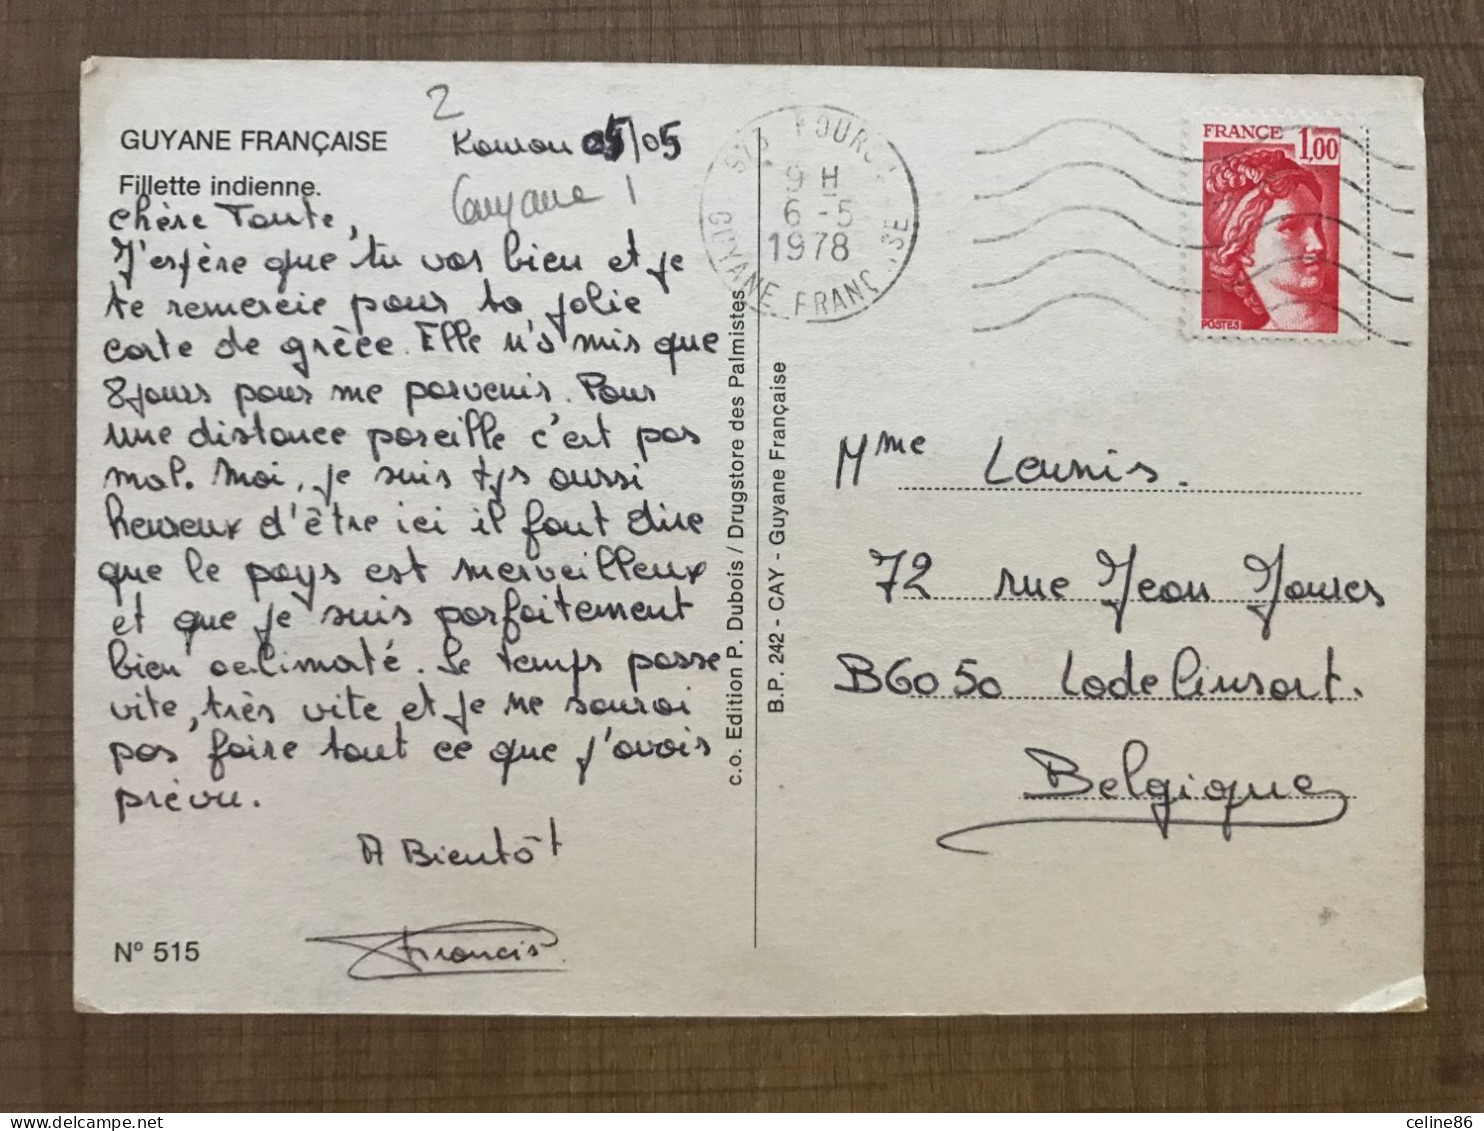 GUYANE FRANÇAISE
Fillette indienne.
2
Kourou 05/05
Guyane
Chère Tante,
J'espère que tu vas bien et je
te remercie pour ta jolie
carte de grèce. Elle n'a mis que
8 jours pour me parvenir. Pour
une distance pareille c'est pas
mal. Moi, je suis tjs aussi
heureux d'être ici il faut dire
que le pays est merveilleux
et que je suis parfaitement
bien acclimaté. Le temps passe
vite, très vite et je ne saurai
pas faire tout ce que j'avais
prévu.
A Bientôt
Francis
N° 515
c.o. Edition P. Dubois / Drugstore des Palmistes
B.P. 242 - CAY - Guyane Française
9 H
6 -5
1978
GUYANE FRANÇAISE
FRANCE
1,00
POSTES
Mme Leunis.
72 rue Jean Jaurès
B6050 Lodelinsart.
Belgique
celine86